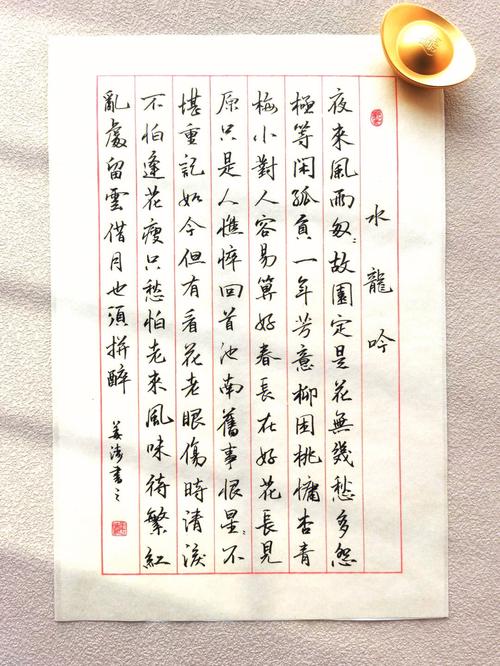 水龍吟
夜來風雨匆〻故園定是花無幾愁多怨
極等閑孤負一年芳意柳困桃慵杏青
梅小對人容易算好春長在好花長見
原只是人憔悴回首池南舊事恨星〻不
堪重記如今但有看花老眼傷時清淚
不怕逢花瘦只愁怕老來風味待繁紅
亂處留雲借月也須拚醉
姜涛書之